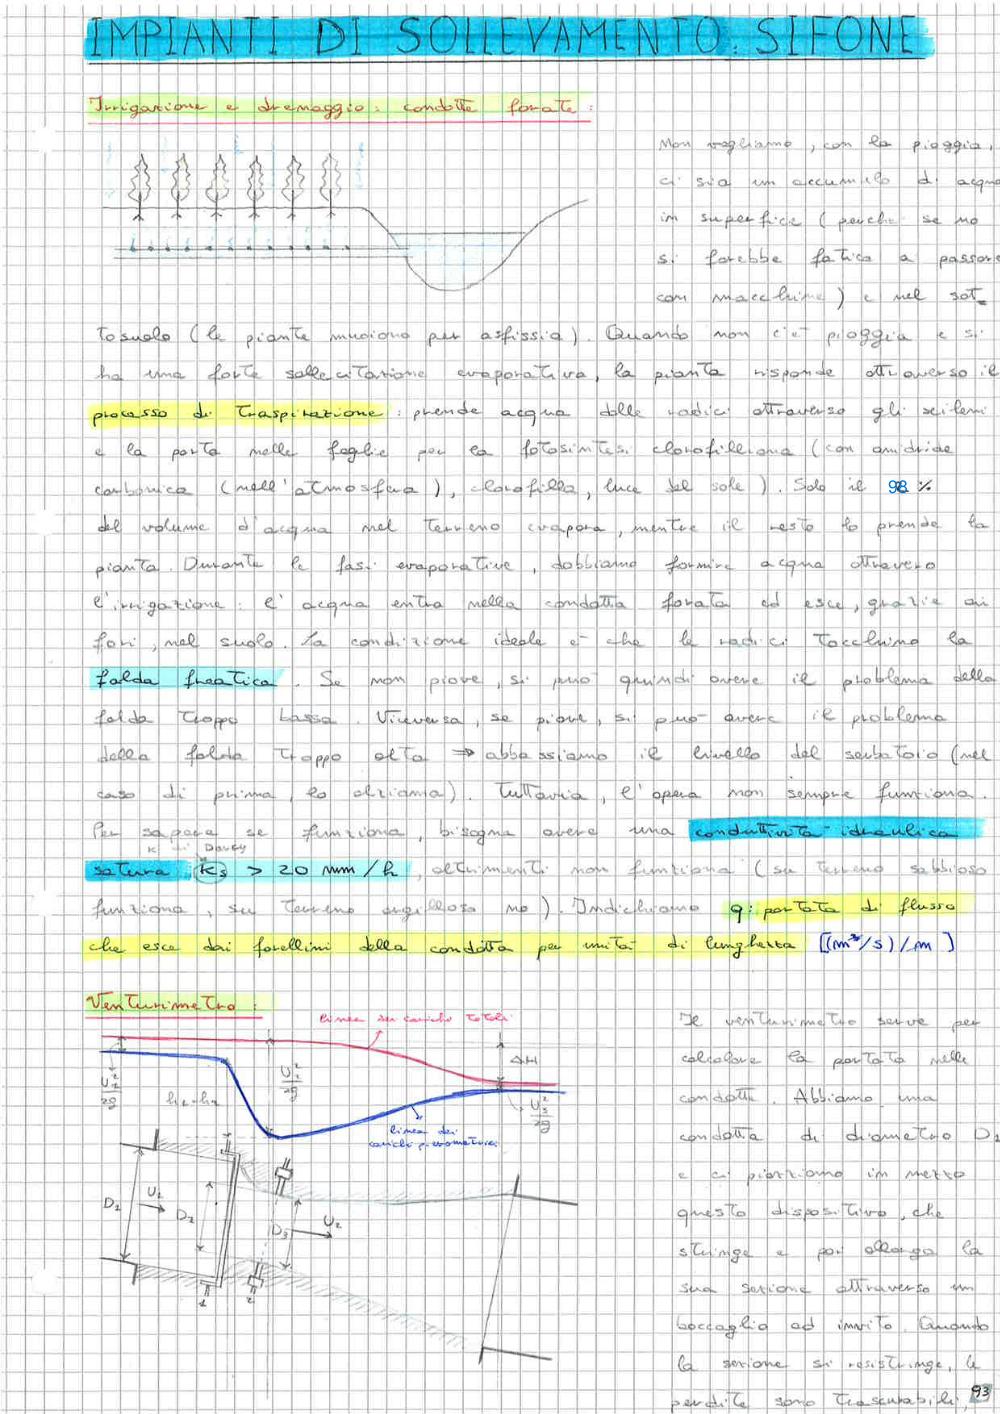 IMPIANTI DI SOLLEVAMENTO: SIFONE
Irrigazione e drenaggio: condotte forate:
Non vogliamo, con la pioggia,
ci sia un accumulo di acqua
in superfice (perché se no
si farebbe fatica a passare
con macchine) e nel sot-
tosuolo (le piante muoiono per asfissia). Quando non c'è pioggia e si
ha una forte sollecitazione evaporativa, la pianta risponde attraverso il
processo di traspirazione: prende acqua dalle radici attraverso gli xilemi
e la porta nelle foglie per la fotosintesi clorofilliana (con anidride
carbonica (nell'atmosfera), clorofilla, luce del sole). Solo il 98 %
del volume d'acqua nel terreno evapora, mentre il resto lo prende la
pianta. Durante le fasi evaporative, dobbiamo fornire acqua attravero
l'irrigazione: l'acqua entra nella condotta forata ed esce, grazie ai
fori, nel suolo. La condizione ideale è che le radici tocchino la
falda freatica. Se non piove, si può quindi avere il problema della
falda troppo bassa. Viceversa, se piove, si può avere il problema
della falda troppo alta ⇒ abbassiamo il livello del serbatoio (nel
caso di prima, lo alziamo). Tuttavia, l'opera non sempre funziona.
Per sapere se funziona, bisogna avere una conduttività idraulica
K di Darcy
satura Ks > 20 mm/h, altrimenti non funziona (su terreno sabbioso
funziona, su terreno argilloso no). Indichiamo q: portata di flusso
che esce dai forellini della condotta per unità di lunghezza [(m³/s)/m]
Venturimetro:
linea dei carichi totali
ΔH
U₁²/2g
h₁-h₂
U₂²/2g
U₃²/2g
linea dei
carichi piezometrici
D₁
U₁
D₂
D₃
U₂
1
2
Il venturimetro serve per
calcolare la portata nelle
condotte. Abbiamo una
condotta di diametro D₁
e ci piazziamo in mezzo
questo dispositivo, che
stringe e poi allarga la
sua sezione attraverso un
boccaglio ad invito. Quando
la sezione si resistringe, le
perdite sono trascurabili,
93